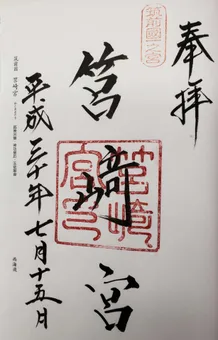 奉拝
筑前國一之宮
筥崎宮
筥崎宮印
平成三十年七月十五日